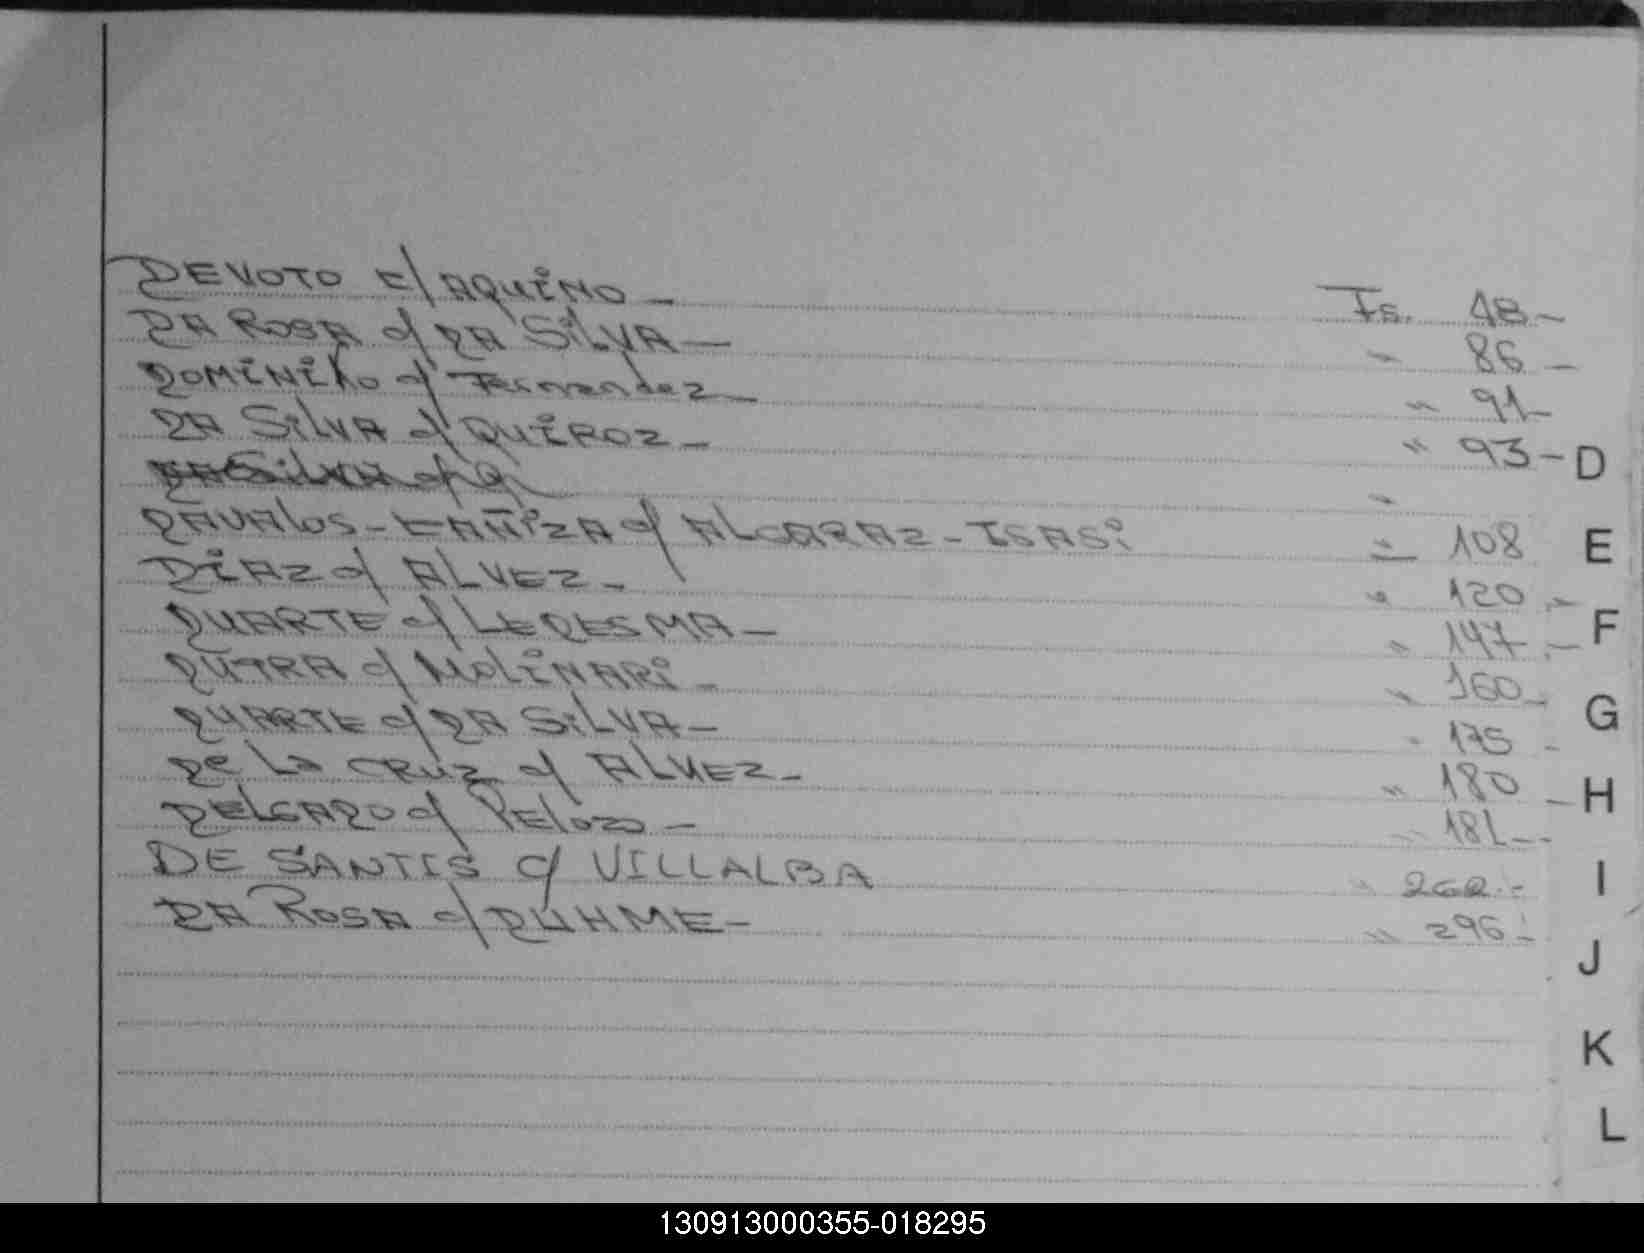 DEVOTO c/ AQUINO - Fs. 48 -
DA ROSA c/ DA SILVA - " 86 -
DOMINIKO c/ Fernandez - " 91 -
DA SILVA c/ QUIROZ - " 93 - D
DA Silva c/ Q "
DAVALOS - CAÑIZA c/ ALCARAZ - ISASi " 108 E
DIAZ c/ ALVEZ - " 120 -
DUARTE c/ LEDESMA - " 147 - F
DUTRA c/ MOLINARi - " 160 -
DUARTE c/ DA SILVA - " 175 - G
De La CRUZ c/ ALVEZ - " 180 - H
DELGADO c/ PELOZO - 181 -
DE SANTIS c/ VILLALBA " 262 - I
DA ROSA c/ DUHME - " 296 -
J
K
L
130913000355-018295